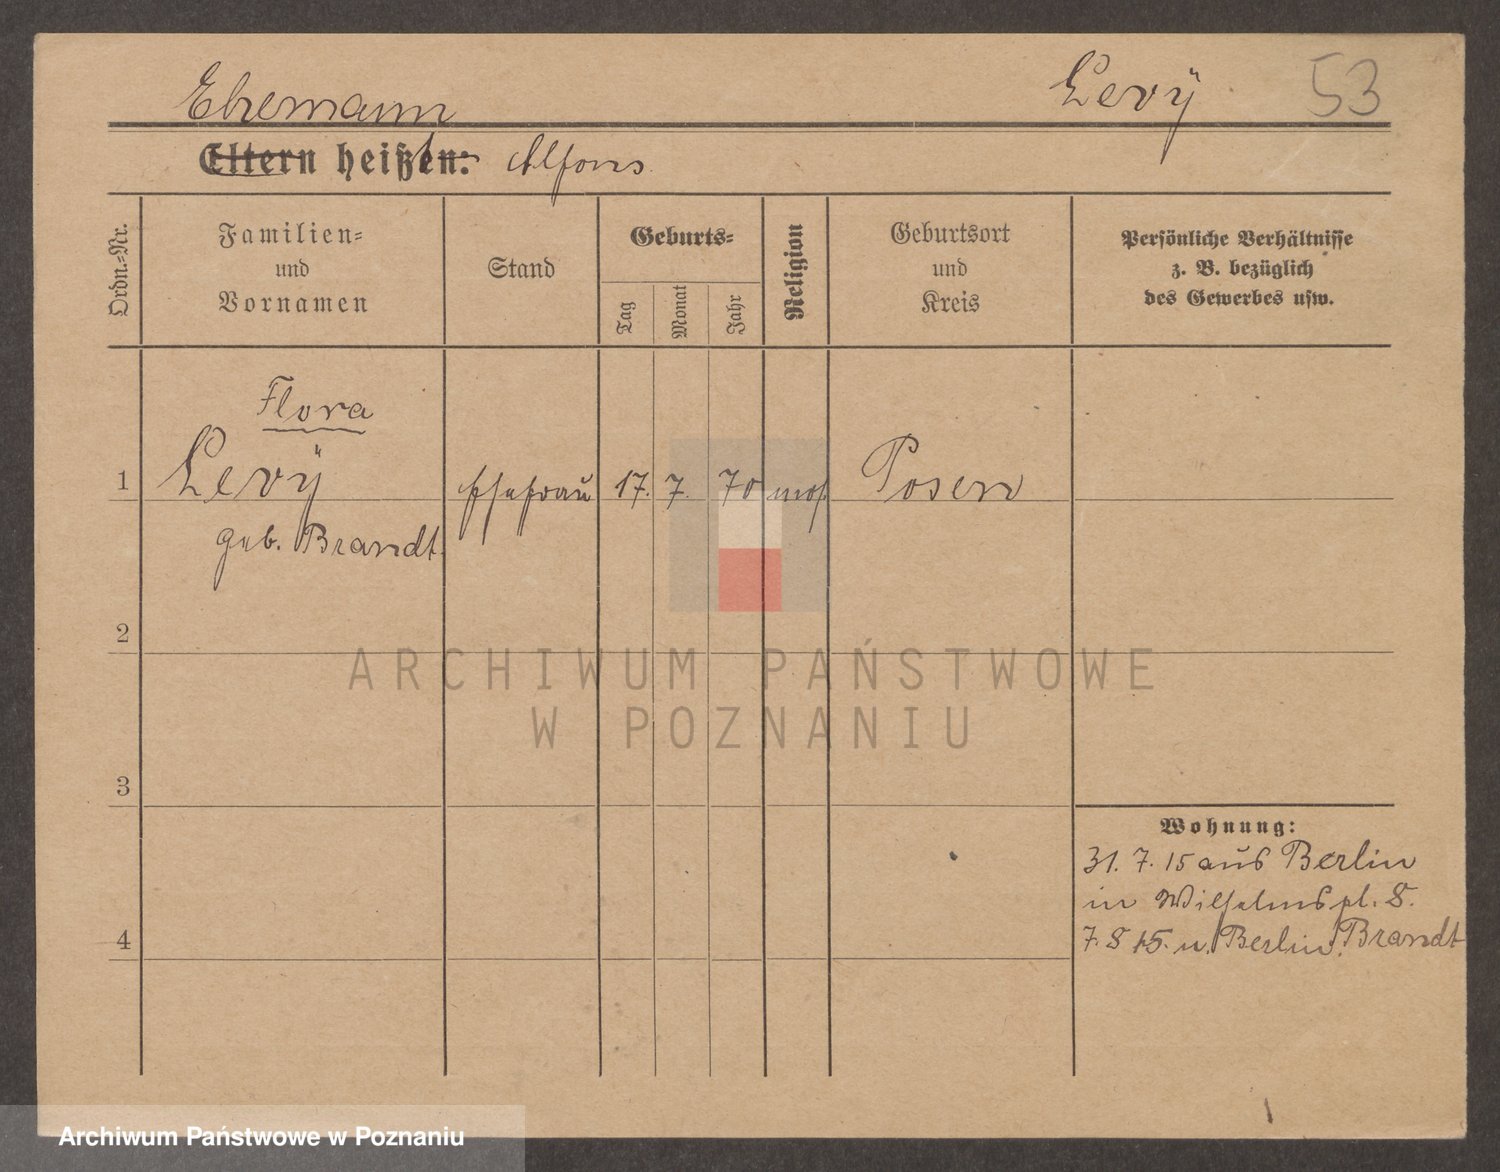 Ehemann
Levÿ
53
Eltern heißen: Alfons.
Ordn.-Nr.
Familien-
und
Vornamen
Stand
Geburts-
Tag
Monat
Jahr
Religion
Geburtsort
und
Kreis
Persönliche Verhältnisse
z. B. bezüglich
des Gewerbes usw.
Flora
1 Levÿ Ehefrau 17. 7. 70 mos. Posen
geb. Brandt
2
ARCHIWUM PAŃSTWOWE
W POZNANIU
3
Wohnung:
31. 7. 15 aus Berlin
in Wilhelmspl. 8.
4
7. 8 15. n. Berlin. Brandt
Archiwum Państwowe w Poznaniu